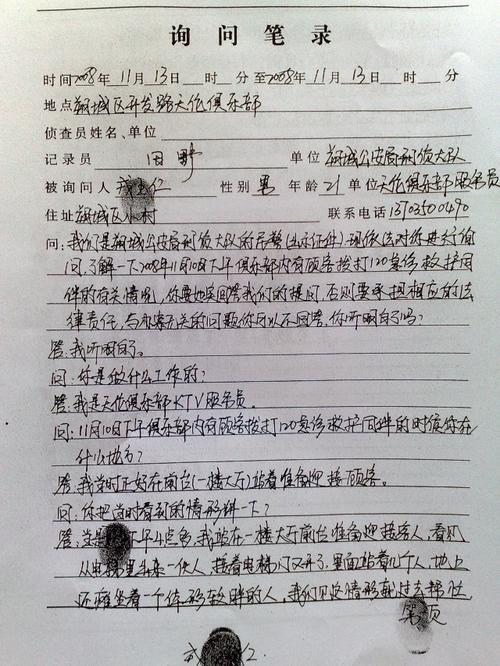 询问笔录
时间2008年11月13日 时 分至2008年11月13日 时 分
地点朔城区开发路天伦俱乐部
侦查员姓名、单位
记录员 田野 单位 朔城公安局刑侦大队
被询问人 仁 性别 男 年龄 21 单位天伦俱乐部服务员
住址 朔城区 村 联系电话 13703500490
问:我们是朔城公安局刑侦大队的民警(出示证件)现依法对你进行询
问,了解一下2008年11月10日下午俱乐部内有顾客拨打120急诊救护同
伴的有关情况,你要如实回答我们的提问,否则要承担相应的法
律责任,与办案无关的问题你可以不回答,你听明白了吗?
答:我听明白了。
问:你是做什么工作的?
答:我是天伦俱乐部KTV服务员。
问:11月10日下午俱乐部内有顾客拨打120急诊救护同伴的时候你在
什么地方?
答:我当时正好在前台(一楼大厅)站着准备迎接顾客。
问:你把当时看到的情形讲一下?
答: 下午4点多,我站在一楼大厅前台准备迎接客人,看见
从电梯里头来一伙人,接着电梯门又开了,里面站着几个人,地上
还瘫坐着一个体形较胖的人,我们见这情形就过去帮忙
第 页
仁